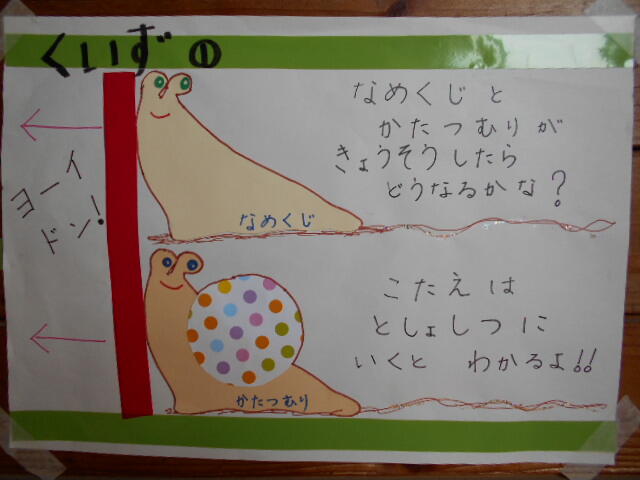 くいずの
なめくじと
かたつむりが
きょうそうしたら
どうなるかな?
ヨーイ
ドン!
なめくじ
こたえは
としょしつに
いくと わかるよ!!
かたつむり